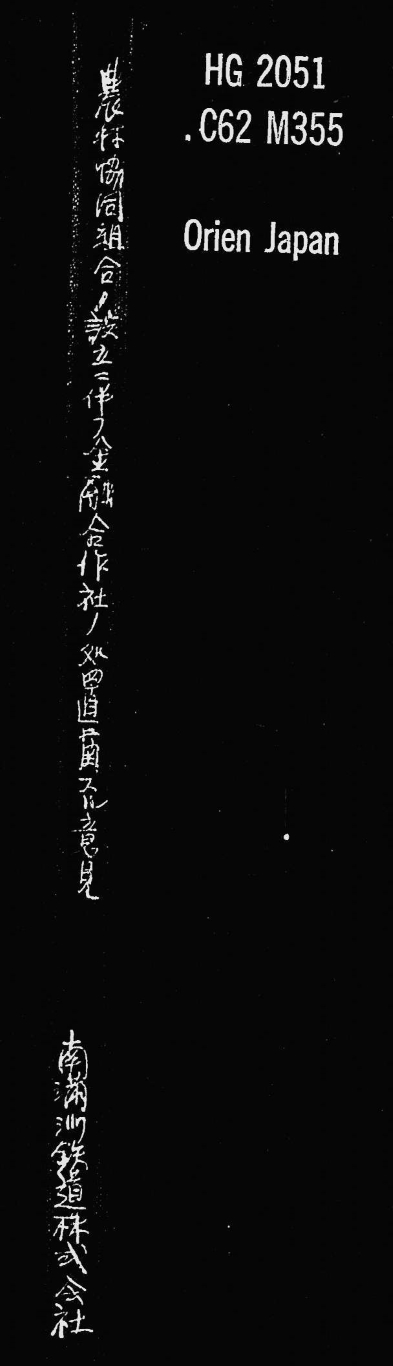 HG 2051
.C62 M355
Orien Japan
農村協同組合ノ設立ニ伴フ金融合作社ノ処置ニ関スル意見
南満洲鉄道株式会社